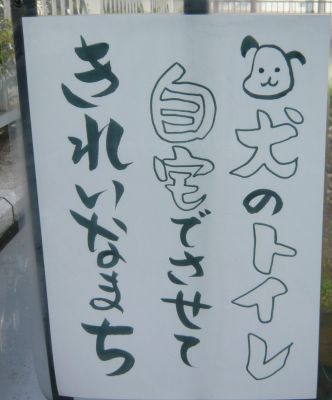 犬のトイレ
自宅でさせて
きれいなまち